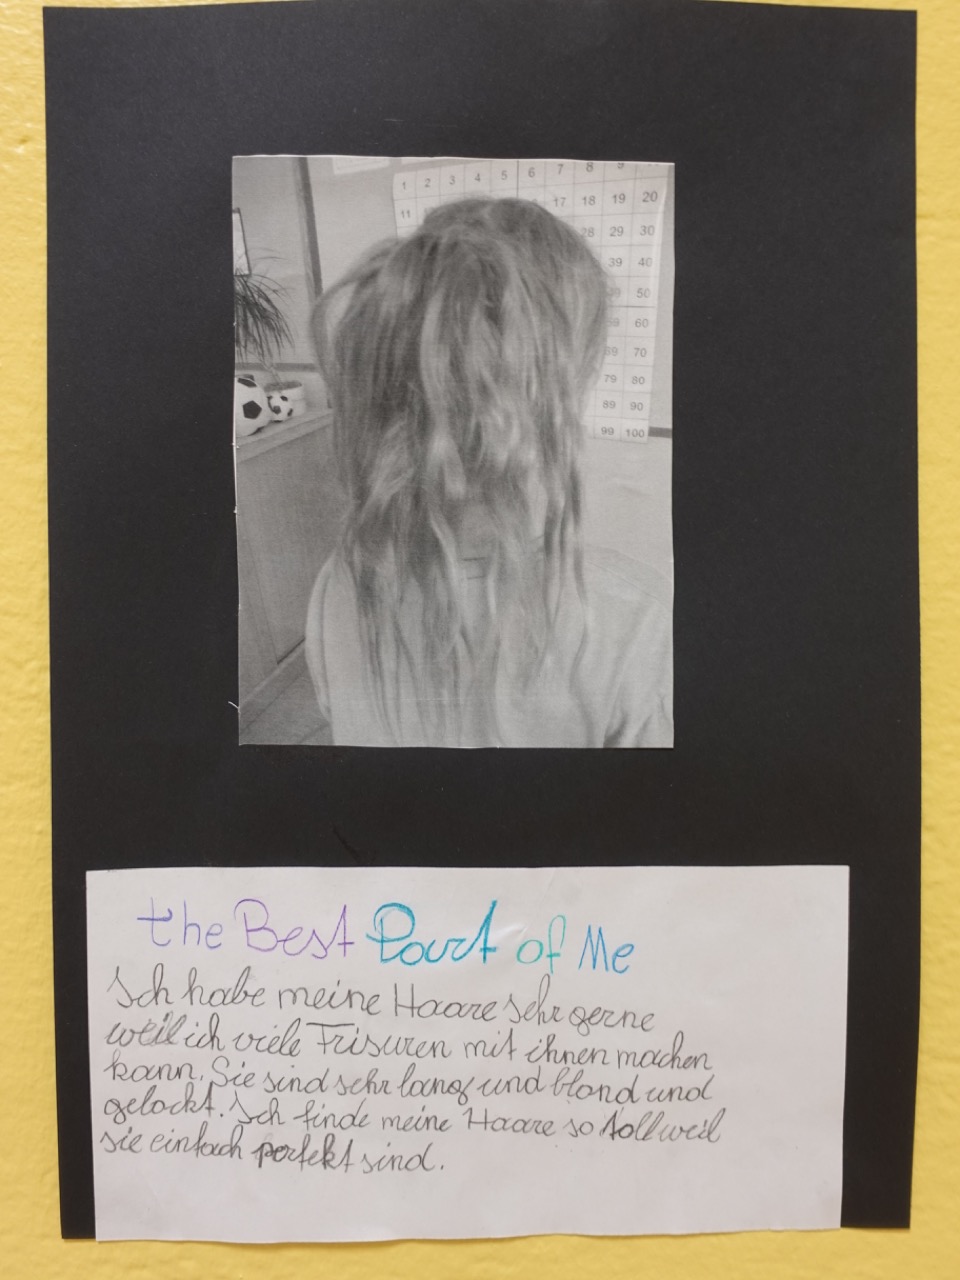 1 2 3 4 5 6 7 8 9
11 17 18 19 20
28 29 30
39 40
50
60
70
79 80
89 90
99 100
the Best Part of Me
Ich habe meine Haare sehr gerne
weil ich viele Frisuren mit ihnen machen
kann. Sie sind sehr lang und blond und
gelockt. Ich finde meine Haare so toll weil
sie einfach perfekt sind.